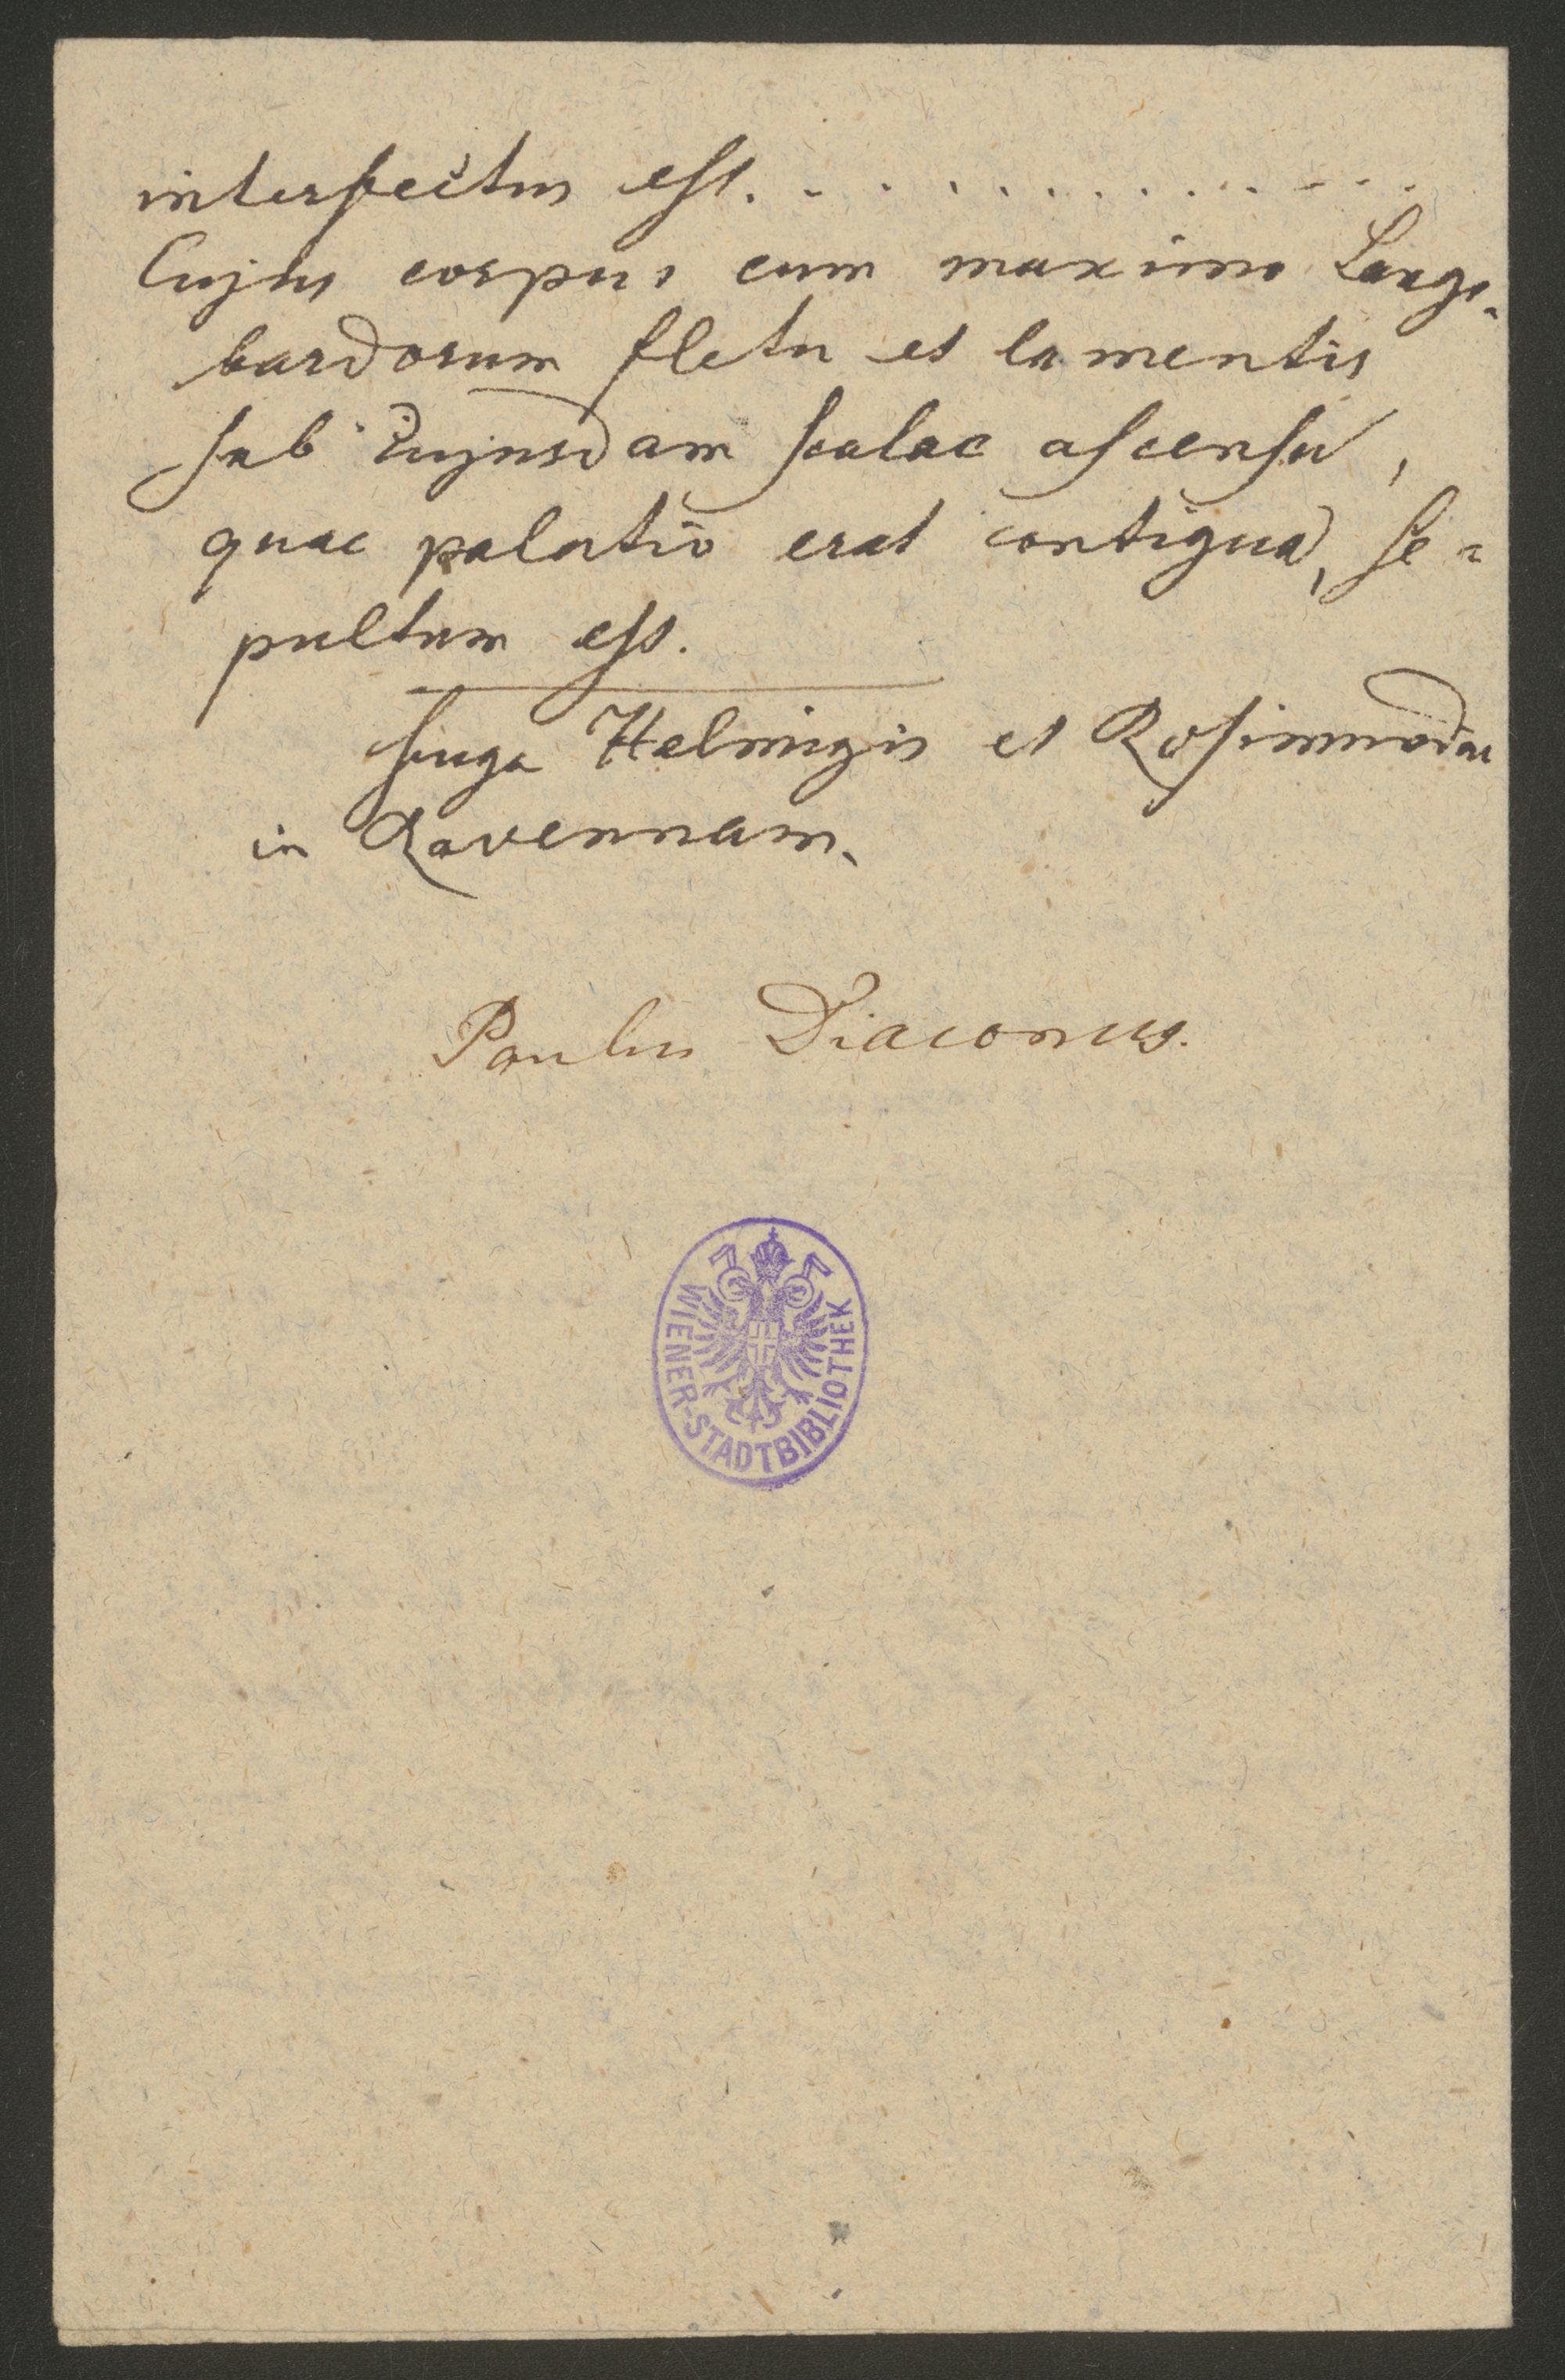 interfectus est. . . . . . . . . . . .
Cujus corpus cum maximo Lango-
bardorum fletu et lamentis
sub cujusdam scalae ascensu,
quae palatio erat contigua, se-
pultum est.
fuga Helmigis et Rosimundae
in Ravennam.
Paulus Diaconus.
WIENER-STADTBIBLIOTHEK